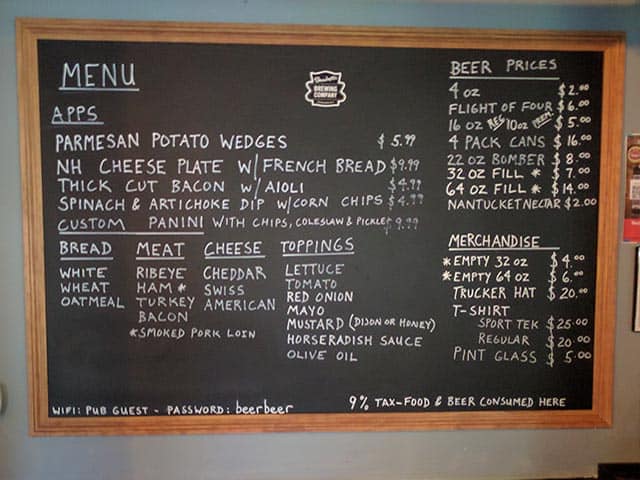 MENU
BREWING
COMPANY
APPS
PARMESAN POTATO WEDGES $5.99
NH CHEESE PLATE W/ FRENCH BREAD $9.99
THICK CUT BACON W/ AIOLI $4.99
SPINACH & ARTICHOKE DIP W/ CORN CHIPS $4.99
CUSTOM PANINI WITH CHIPS, COLESLAW & PICKLE $9.99
BREAD
WHITE
WHEAT
OATMEAL
MEAT
RIBEYE
HAM *
TURKEY
BACON
*SMOKED PORK LOIN
CHEESE
CHEDDAR
SWISS
AMERICAN
TOPPINGS
LETTUCE
TOMATO
RED ONION
MAYO
MUSTARD (DIJON OR HONEY)
HORSERADISH SAUCE
OLIVE OIL
BEER PRICES
4 OZ $2.00
FLIGHT OF FOUR $6.00
16 OZ REG 10oz PREM $5.00
4 PACK CANS $16.00
22 OZ BOMBER $8.00
32 OZ FILL * $7.00
64 OZ FILL * $14.00
NANTUCKET NECTAR $2.00
MERCHANDISE
*EMPTY 32 OZ $4.00
*EMPTY 64 OZ $6.00
TRUCKER HAT $20.00
T-SHIRT
SPORT TEK $25.00
REGULAR $20.00
PINT GLASS $5.00
WIFI: PUB GUEST - PASSWORD: beerbeer
9% TAX-FOOD & BEER CONSUMED HERE